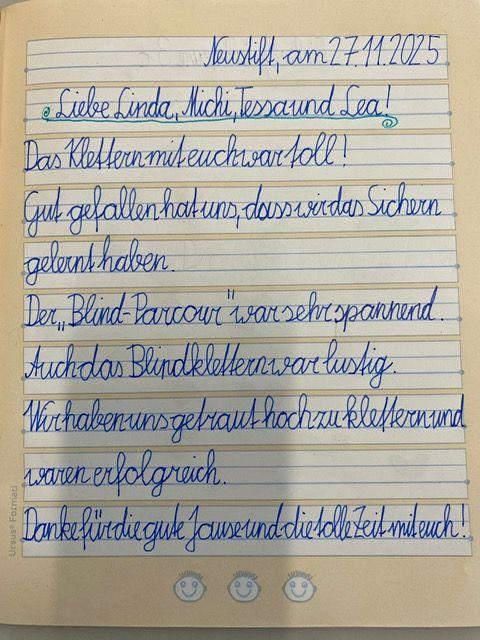 Neustift, am 27.11.2025
Liebe Linda, Michi, Tessa und Lea!
Das Klettern mit euch war toll!
Gut gefallen hat uns, dass wir das Sichern
gelernt haben.
Der „Blind-Parcour" war sehr spannend.
Auch das Blindklettern war lustig.
Wir haben uns getraut hoch zu klettern und
waren erfolgreich.
Danke für die gute Jause und die tolle Zeit mit euch!
Ursus® Format